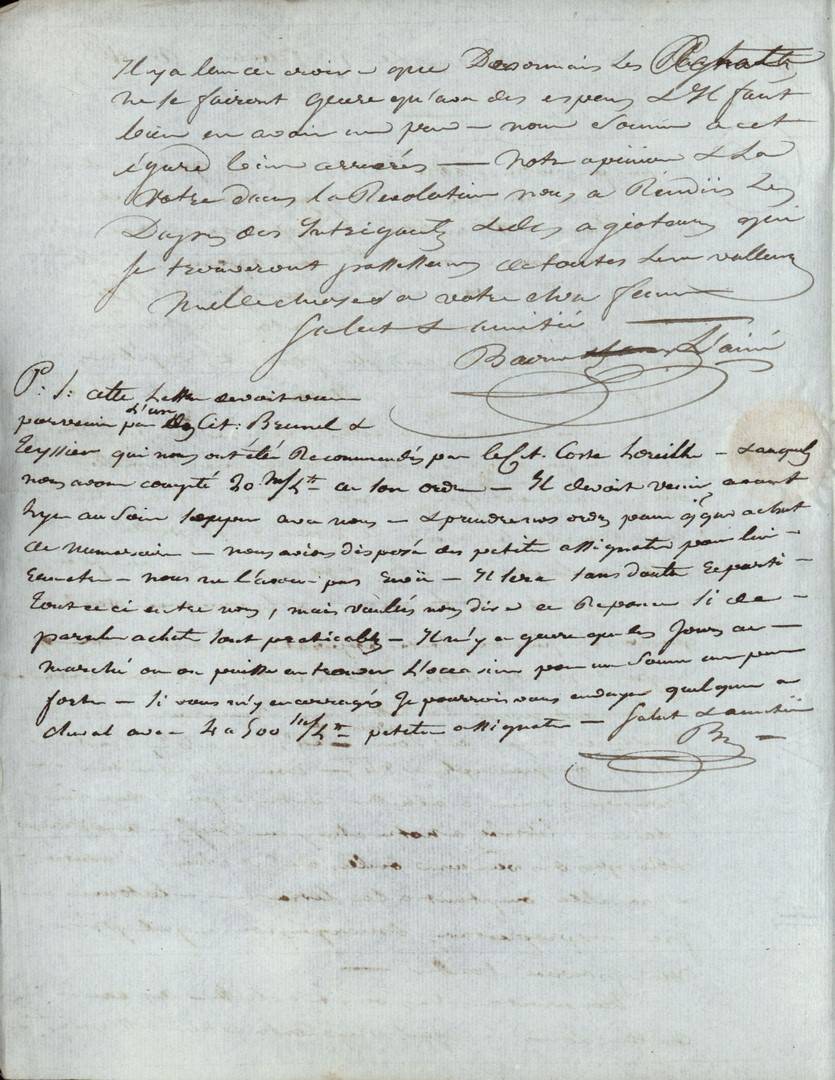 Il y a lieu de croire que Desormais Les
ne se fairont guere qu'avec des especes & Il faut
bien en avoir un peu — nous Sommes a cet
égard bien arrierés — Notre opinion & La
Votre dans la Revolution nous a Rendüs Les
Dupes des Intrigants & des agioteurs qui
se trouveront possesseurs de toutes Leurs valleurs
Mille choses a votre chere femme
Salut & amitié
L'ainé
P: S: cette Lettre devoit vous
parvenir par L'un des Cit: Brunel &
Teyssier qui nous ont été Recommendés par le Cit. Coste — auxquels
nous avons compté 20 de son ordre — Il devoit venir avant
hyer au Soir souper avec nous — & prendre nos ordres pour q.que achat
de Numeraire — nous avions disposé des petits assignats pour lui
— nous ne l'avons pas — Il sera sans doute Reparti —
Tout ceci entre nous, mais voulés nous dire en Reponse Si de —
pareils achats sont praticables — Il n'y a guere que les Jours de —
marché ou on puisse en trouver L'occasion pour un Somme un peu
forte — Si vous m'y encouragés Je pourrois vous envoyer quelqu'un a
cheval avec 4 a 500 petits assignats — Salut & amitié